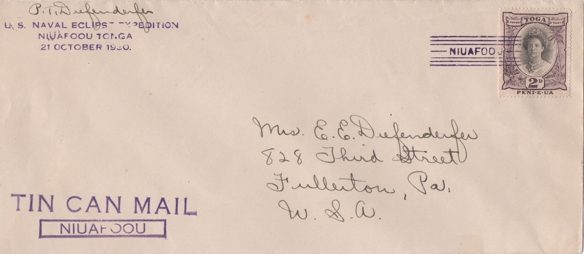 P. T. Diefenderfer
U. S. NAVAL ECLIPSE EXPEDITION
NIUAFOOU TONGA
21 OCTOBER 1930.
NIUAFOO
TOGA
2D
PENI-E-UA
Mrs. E. E. Diefenderfer
828 Third Street
Fullerton, Pa.
U. S. A.
TIN CAN MAIL
NIUAFOOU